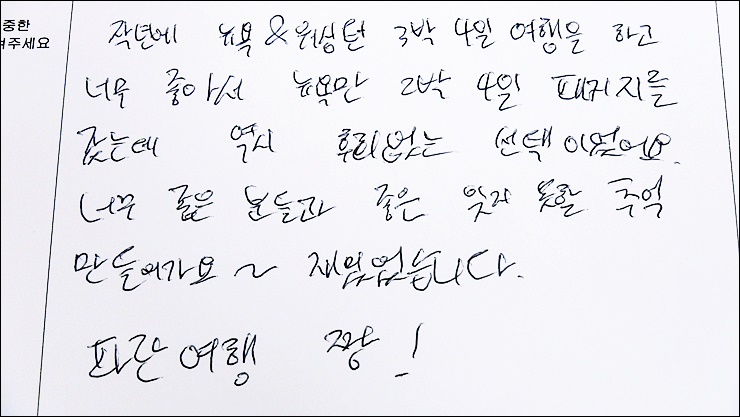 중한
겨주세요
작년에 뉴욕&워싱턴 3박 4일 여행을 하고
너무 좋아서 뉴욕만 2박 4일 패키지를
갔는데 역시 후회없는 선택이었어요.
너무 좋은 분들과 좋은 잊지 못할 추억
만들어가요~ 재밌었습니다.
파란여행 짱!